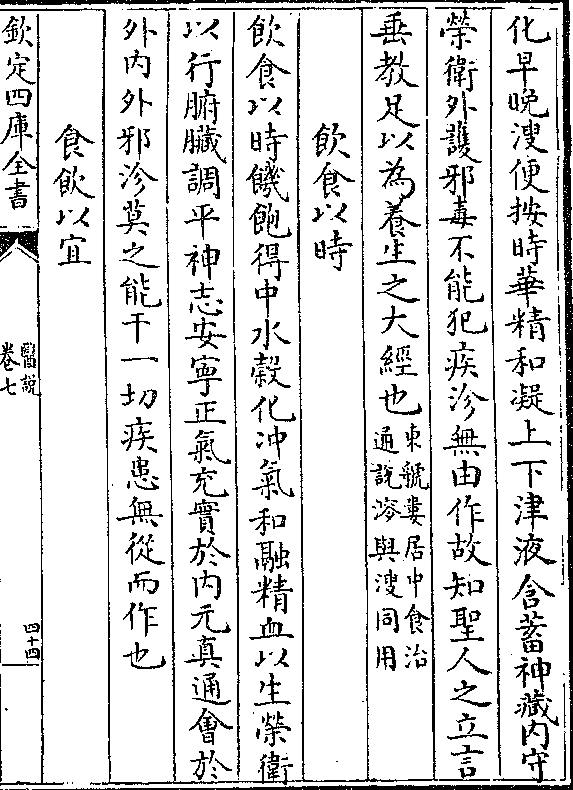 化早晚溲便按時華精和凝上下津液含蓄神藏内守
榮衛外護邪毒不能犯疾沴無由作故知聖人之立言
垂教足以為養生之大經也東虢婁居中食治
通説溲與溲同用
飲食以時
飲食以時饑飽得中水穀化冲氣和融精血以生榮衛
以行腑臟調平神志安寧正氣充實於内元真通㑹於
外内外邪沴莫之能干一切疾患無從而作也
食飲以宜
欽定四庫全書
醫説
卷七
四十四